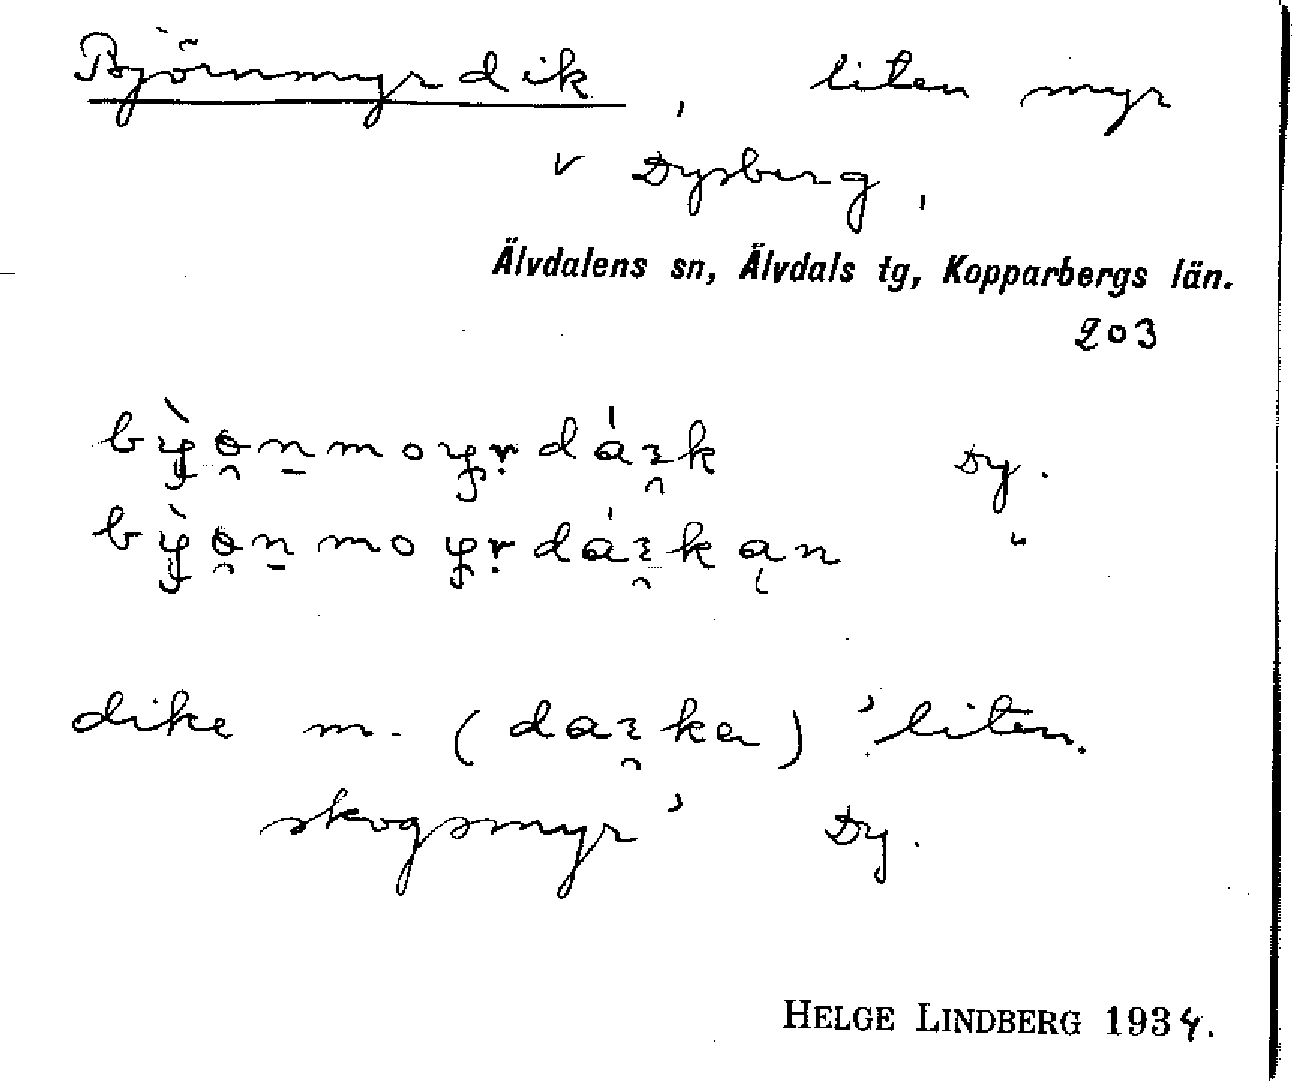 Björnmyrdik, liten myr
v Dysberg,
Älvdalens sn, Älvdals tg, Kopparbergs län.
203
Dy.
"
dike m. ( ) 'liten
skogsmyr' Dy.
HELGE LINDBERG 1934.